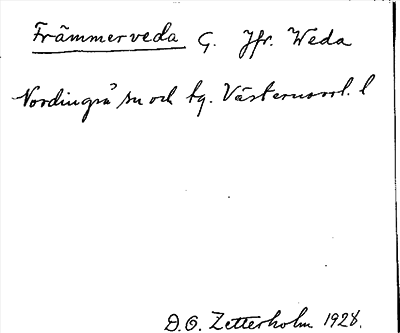 Främmerveda G. Jfr. Weda
Nordingrå sn och tg. Västernorrl. l
D.O. Zetterholm 1928.